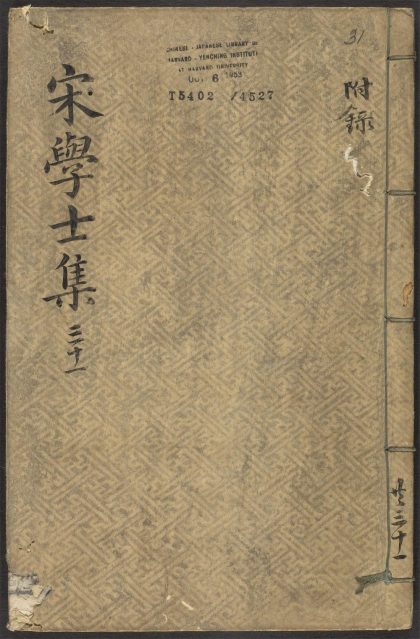 31
附錄
CHINESE - JAPANESE LIBRARY OF
HARVARD - YENCHING INSTITUTE
AT HARVARD UNIVERSITY
OCT 6 1953
T5402 /4527
宋學士集 三十一
共三十一